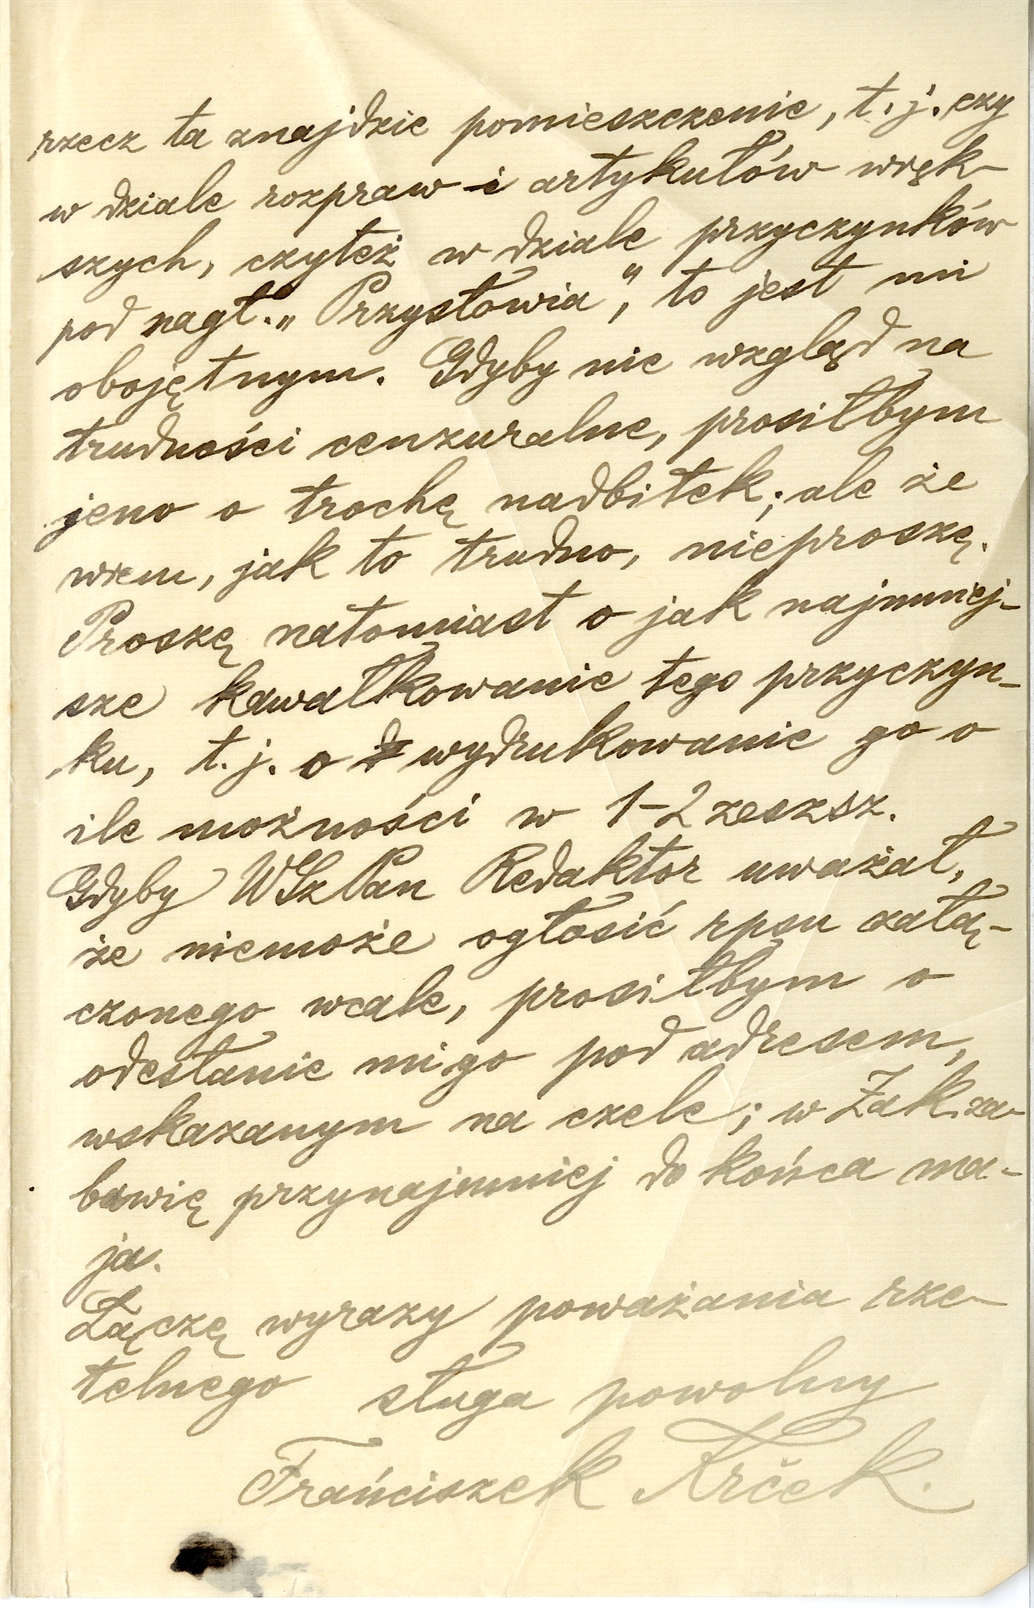 rzecz ta znajdzie pomieszczenie, t.j. czy
w dziale rozpraw i artykułów więk-
szych, czyteż w dziale przyczynków
pod nagł. „Przysłowia", to jest mi
obojętnym. Gdyby nie wzgląd na
trudności cenzuralne, prosiłbym
jeno o trochę nadbitek; ale że
wiem, jak to trudno, nieproszę.
Proszę natomiast o jak najmniej-
sze kawałkowanie tego przyczyn-
ku, t.j. o wydrukowanie go o
ile możności w 1-2 zeszsz.
Gdyby WSzPan Redaktor uważał,
że niemoże ogłosić rpsu załą-
czonego wcale, prosiłbym o
odesłanie mi go pod adresem,
wskazanym na czele; w Zak. za-
bawię przynajmniej do końca ma-
ja.
Łączę wyrazy poważania rze-
telnego sługa powolny
Frańciszek Krček.